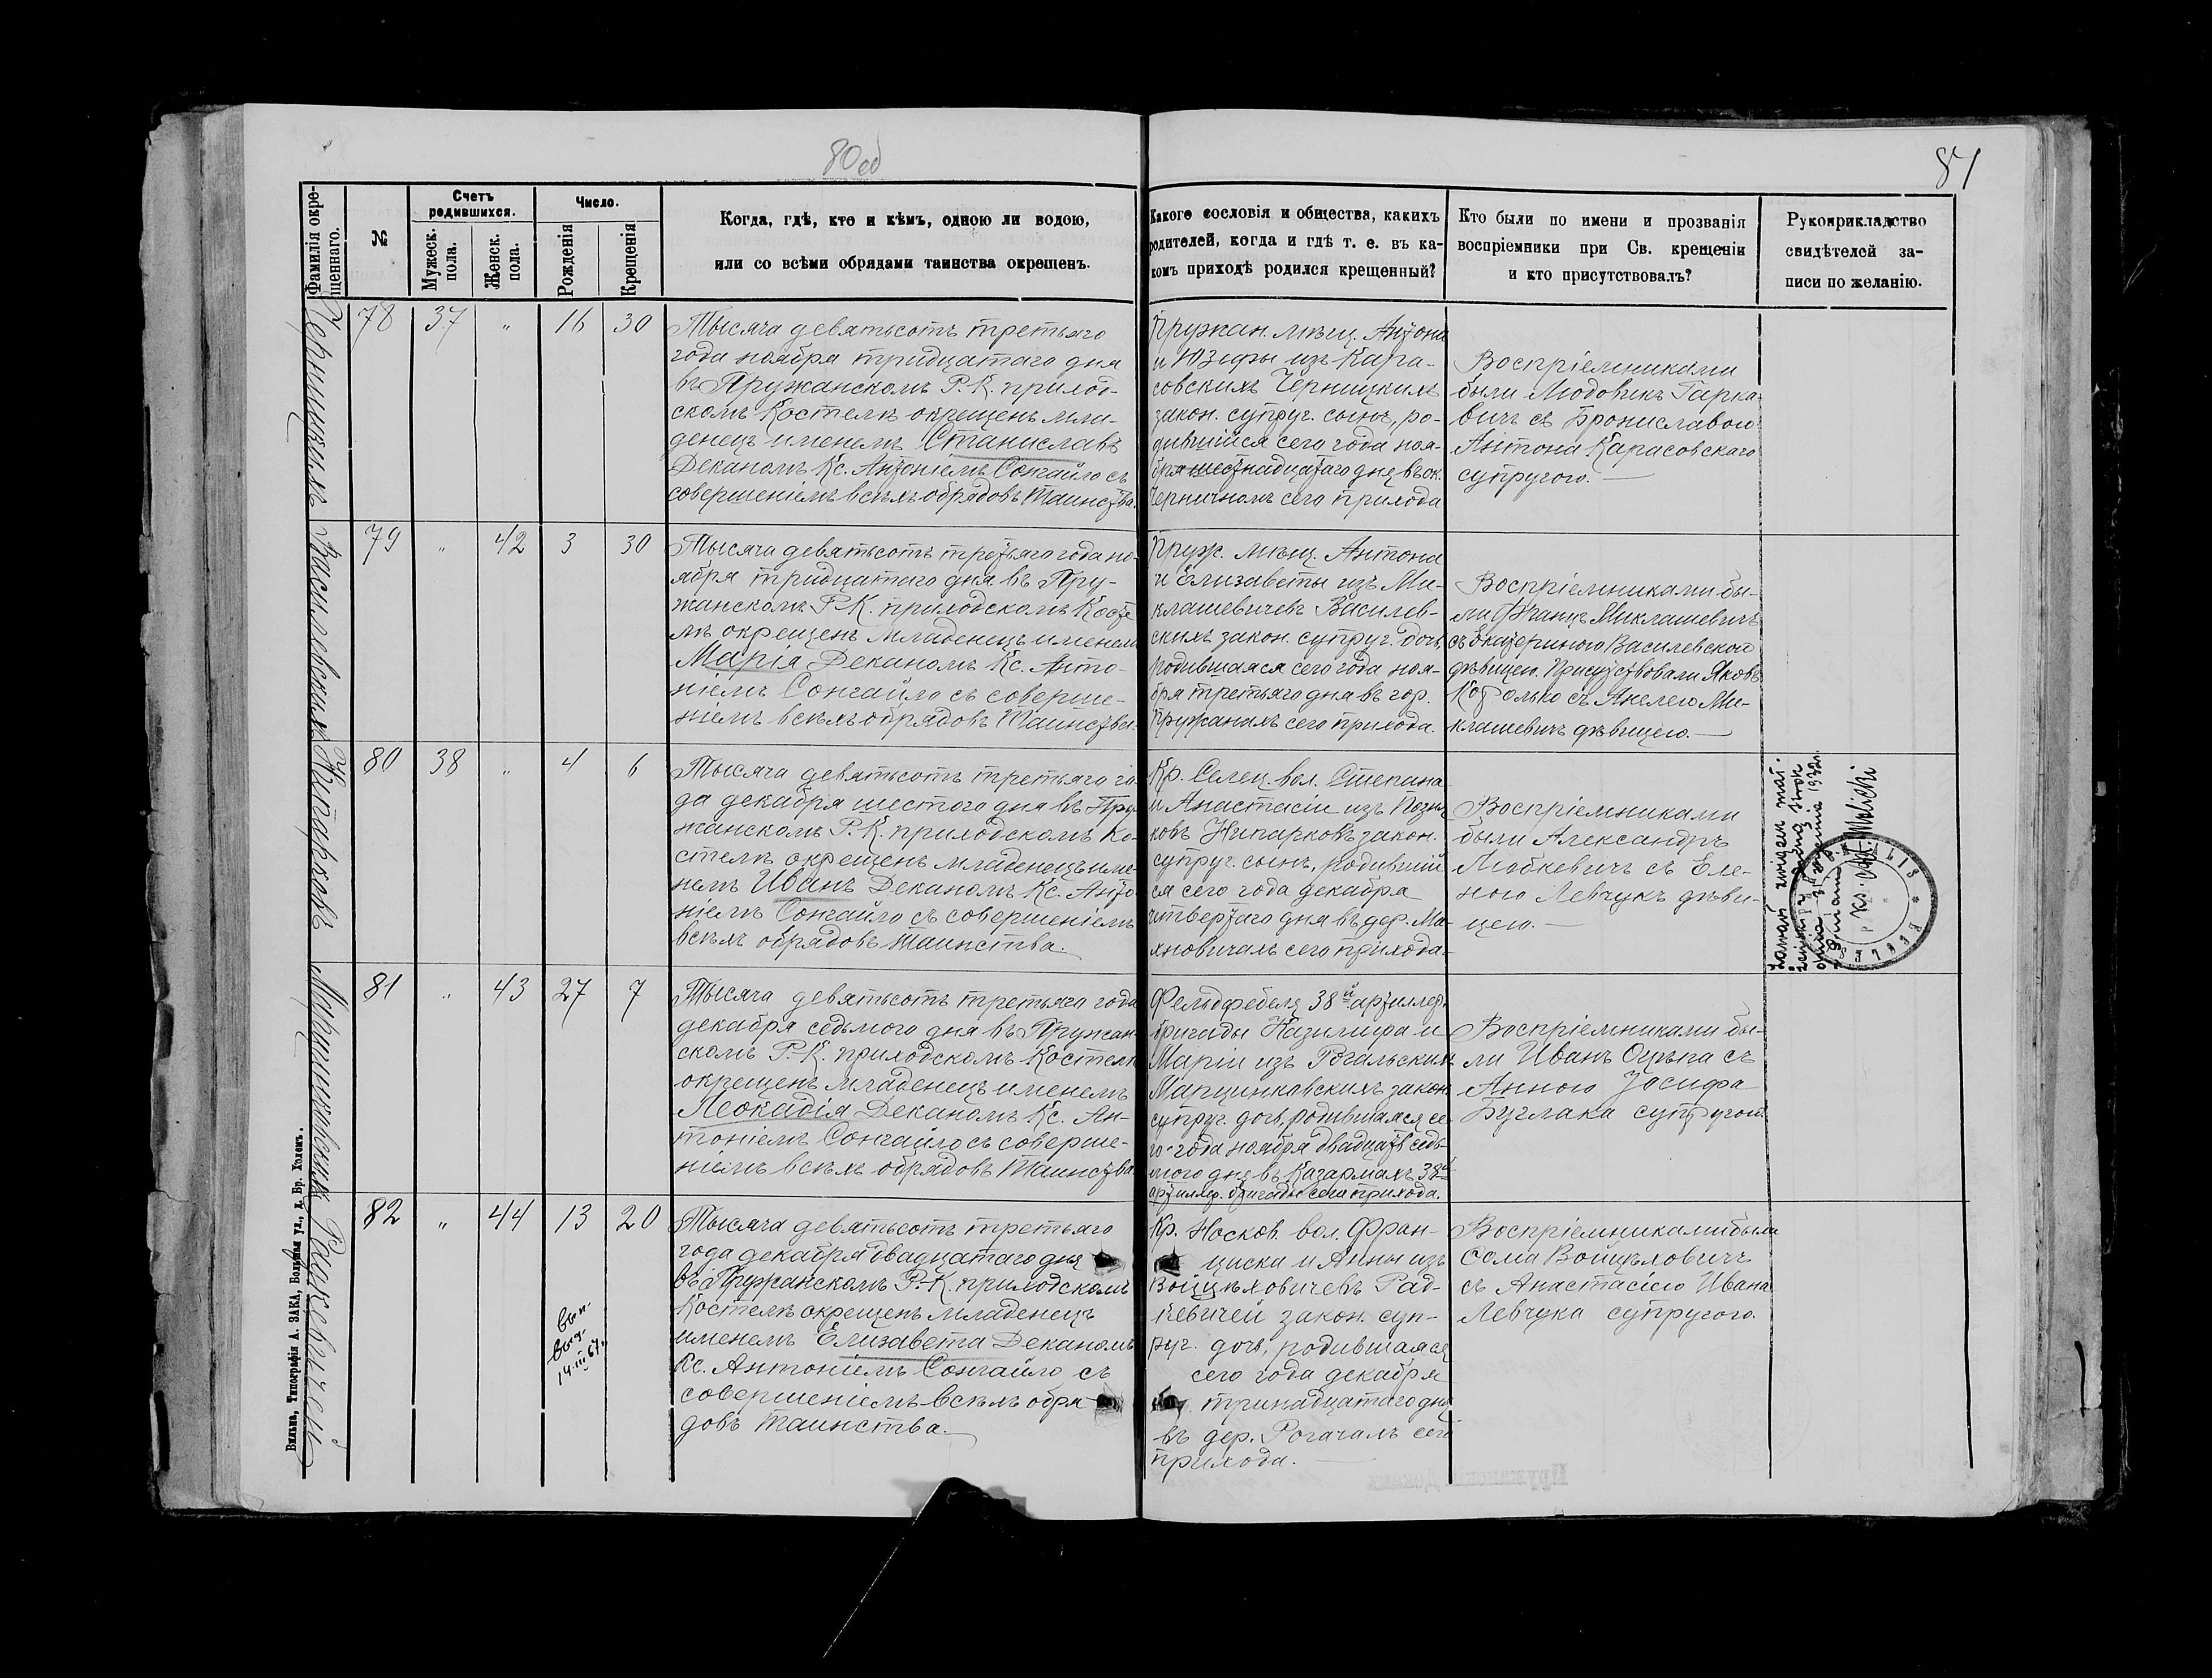 80 об
81
Фамилія окрещеннаго.
№
Счетъ родившихся.
Мужеск. пола.
Женск. пола.
Число.
Рожденія
Крещенія
Когда, гдѣ, кто и кѣмъ, одною ли водою,
или со всѣми обрядами таинства окрещенъ.
Какого сословія и общества, какихъ
родителей, когда и гдѣ т. е. въ ка-
комъ приходѣ родился крещенный?
Кто были по имени и прозванія
воспріемники при Св. крещеніи
и кто присутствовалъ?
Рукоприкладство
свидѣтелей за-
писи по желанію.
Черницкихъ
78
37
"
16
30
Тысяча девятьсотъ третьяго
года ноября тридцатаго дня
въ Пружанскомъ Р. К. приход-
скомъ Костелѣ окрещенъ мла-
денецъ именемъ Станиславъ
Деканомъ Кс. Антоніемъ Сонгайло съ
совершеніемъ всѣхъ обрядовъ Таинства.
Пружан. мѣщ. Антона
и Юзефы изъ Кара-
совскихъ Черницкихъ
закон. супруг. сынъ, ро-
дившійся сего года ноя-
бря шестнадцатаго дня въ ок.
Черничномъ сего прихода
Воспріемниками
были Людовикъ Гарка-
вичъ съ Брониславою
Антона Карасовскаго
супругою.
Василевскихъ
79
"
42
3
30
Тысяча девятьсотъ третьяго года но-
ября тридцатаго дня въ Пру-
жанскомъ Р. К. приходскомъ Косте
лѣ окрещенъ младенецъ именемъ
Марія Деканомъ Кс. Анто-
ніемъ Сонгайло съ соверше-
ніемъ всѣхъ обрядовъ Таинства.
Пруж. мѣщ. Антона
и Елизаветы изъ Ми-
клашевичевъ Василев-
скихъ закон. супруг. дочь,
родившаяся сего года ноя-
бря третьяго дня въ гор.
Пружанахъ сего прихода.
Воспріемниками бы-
ли Францъ Миклашевичъ
съ Екатериною Василевской
дѣвицей. Присутствовали Яковъ
съ Анелею Ми-
клашевичъ дѣвицею.
Нипарковъ
80
38
"
4
6
Тысяча девятьсотъ третьяго го-
да декабря шестого дня въ Пру
жанскомъ Р. К. приходскомъ Ко-
стелѣ окрещенъ младенецъ име-
немъ Иванъ Деканомъ Кс. Анто
ніемъ Сонгайло съ совершеніемъ
всѣхъ обрядовъ Таинства.
Кр. Селец. вол. Степана
и Анастасіи изъ
ковъ Нипарковъ закон.
супруг. сынъ, родившій
ся сего года декабря
четвертаго дня въ дер. Ма-
хновичахъ сего прихода
Воспріемниками
были Александръ
Любкевичъ съ Еле-
ною Левчукъ дѣви-
цею.
Zawarł związek mał.
1932
Ks. Malicki
Марцинковскихъ
81
"
43
27
7
Тысяча девятьсотъ третьяго года
декабря седьмого дня въ Пружан-
скомъ Р.-К. приходскомъ Костелѣ
окрещенъ младенецъ именемъ
Леокадія Деканомъ Кс. Ан-
тоніемъ Сонгайло съ соверше-
ніемъ всѣхъ обрядовъ Таинства
Фельдфебеля 38й артиллер.
бригады Казимира и
Маріи изъ Рогальскихъ
Марцинковскихъ закон.
супруг. дочь, родившаяся се-
го года ноября двадцать седь-
мого дня въ Казармахъ 38й
артиллер. бригады сего прихода.
Воспріемниками бы-
ли Иванъ съ
Анною Іосифа
Буглака супругой
Радкевичей
82
"
44
13
20
14 III 67
Тысяча девятьсотъ третьяго
года декабря двадцатаго дня
въ Пружанскомъ Р.-К. приходскомъ
Костелѣ окрещенъ младенецъ
именемъ Елизавета Деканомъ
Кс. Антоніемъ Сонгайло съ
совершеніемъ всѣхъ обря
довъ Таинства.
Кр. Носков. вол. Фран-
циска и Анны изъ
Войцѣховичевъ Рад-
кевичей закон. суп-
руг. дочь, родившаяся
сего года декабря
тринадцатаго дня
въ дер. Рогачахъ сего
прихода.
Воспріемниками были
Войцѣховичъ
съ Анастасіею Ивана
Левчука супругою.
Вильна, Типографія А. ЗАКА, Большая ул., д. Бр. Холемъ.